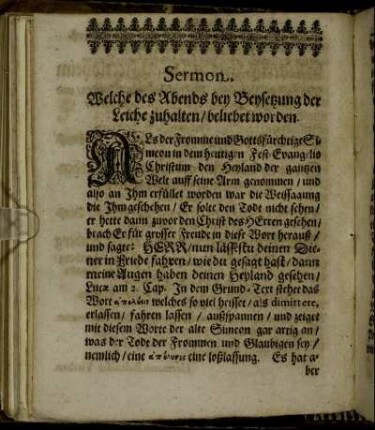 Sermon.
Welche des Abends bey Beysetzung der
Leiche zuhalten/ beliebet worden.
ALs der Fromme und Gottsfürchtige Si-
meon in dem heutigen Fest-Evangelio
Christum den Heyland der gantzen
Welt auff seine Arm genommen / und
also an Ihm erfüllet worden war die Weissagung
die Ihm geschehen / Er solte den Todt nicht sehen/
er hette dann zuvor den Christ des HErren gesehen/
brach Er für grosser Freude in diese Wort herauß/
und sagte: HERR/ nun lässestu deinen Die-
ner in Friede fahren/ wie du gesagt hast/ dann
meine Augen haben deinen Heyland gesehen/
Lucæ am 2. Cap. In dem Grund-Text stehet das
Wort ἀπολύεις welches so viel heisset / als dimittere,
erlassen/ fahren lassen / außspannen / und zeiget
mit diesem Worte der alte Simeon gar artig an/
was der Todt der Frommen und Glaubigen sey/
nemlich/ eine ἀπόλυσις eine loßlassung. Es hat a-
ber